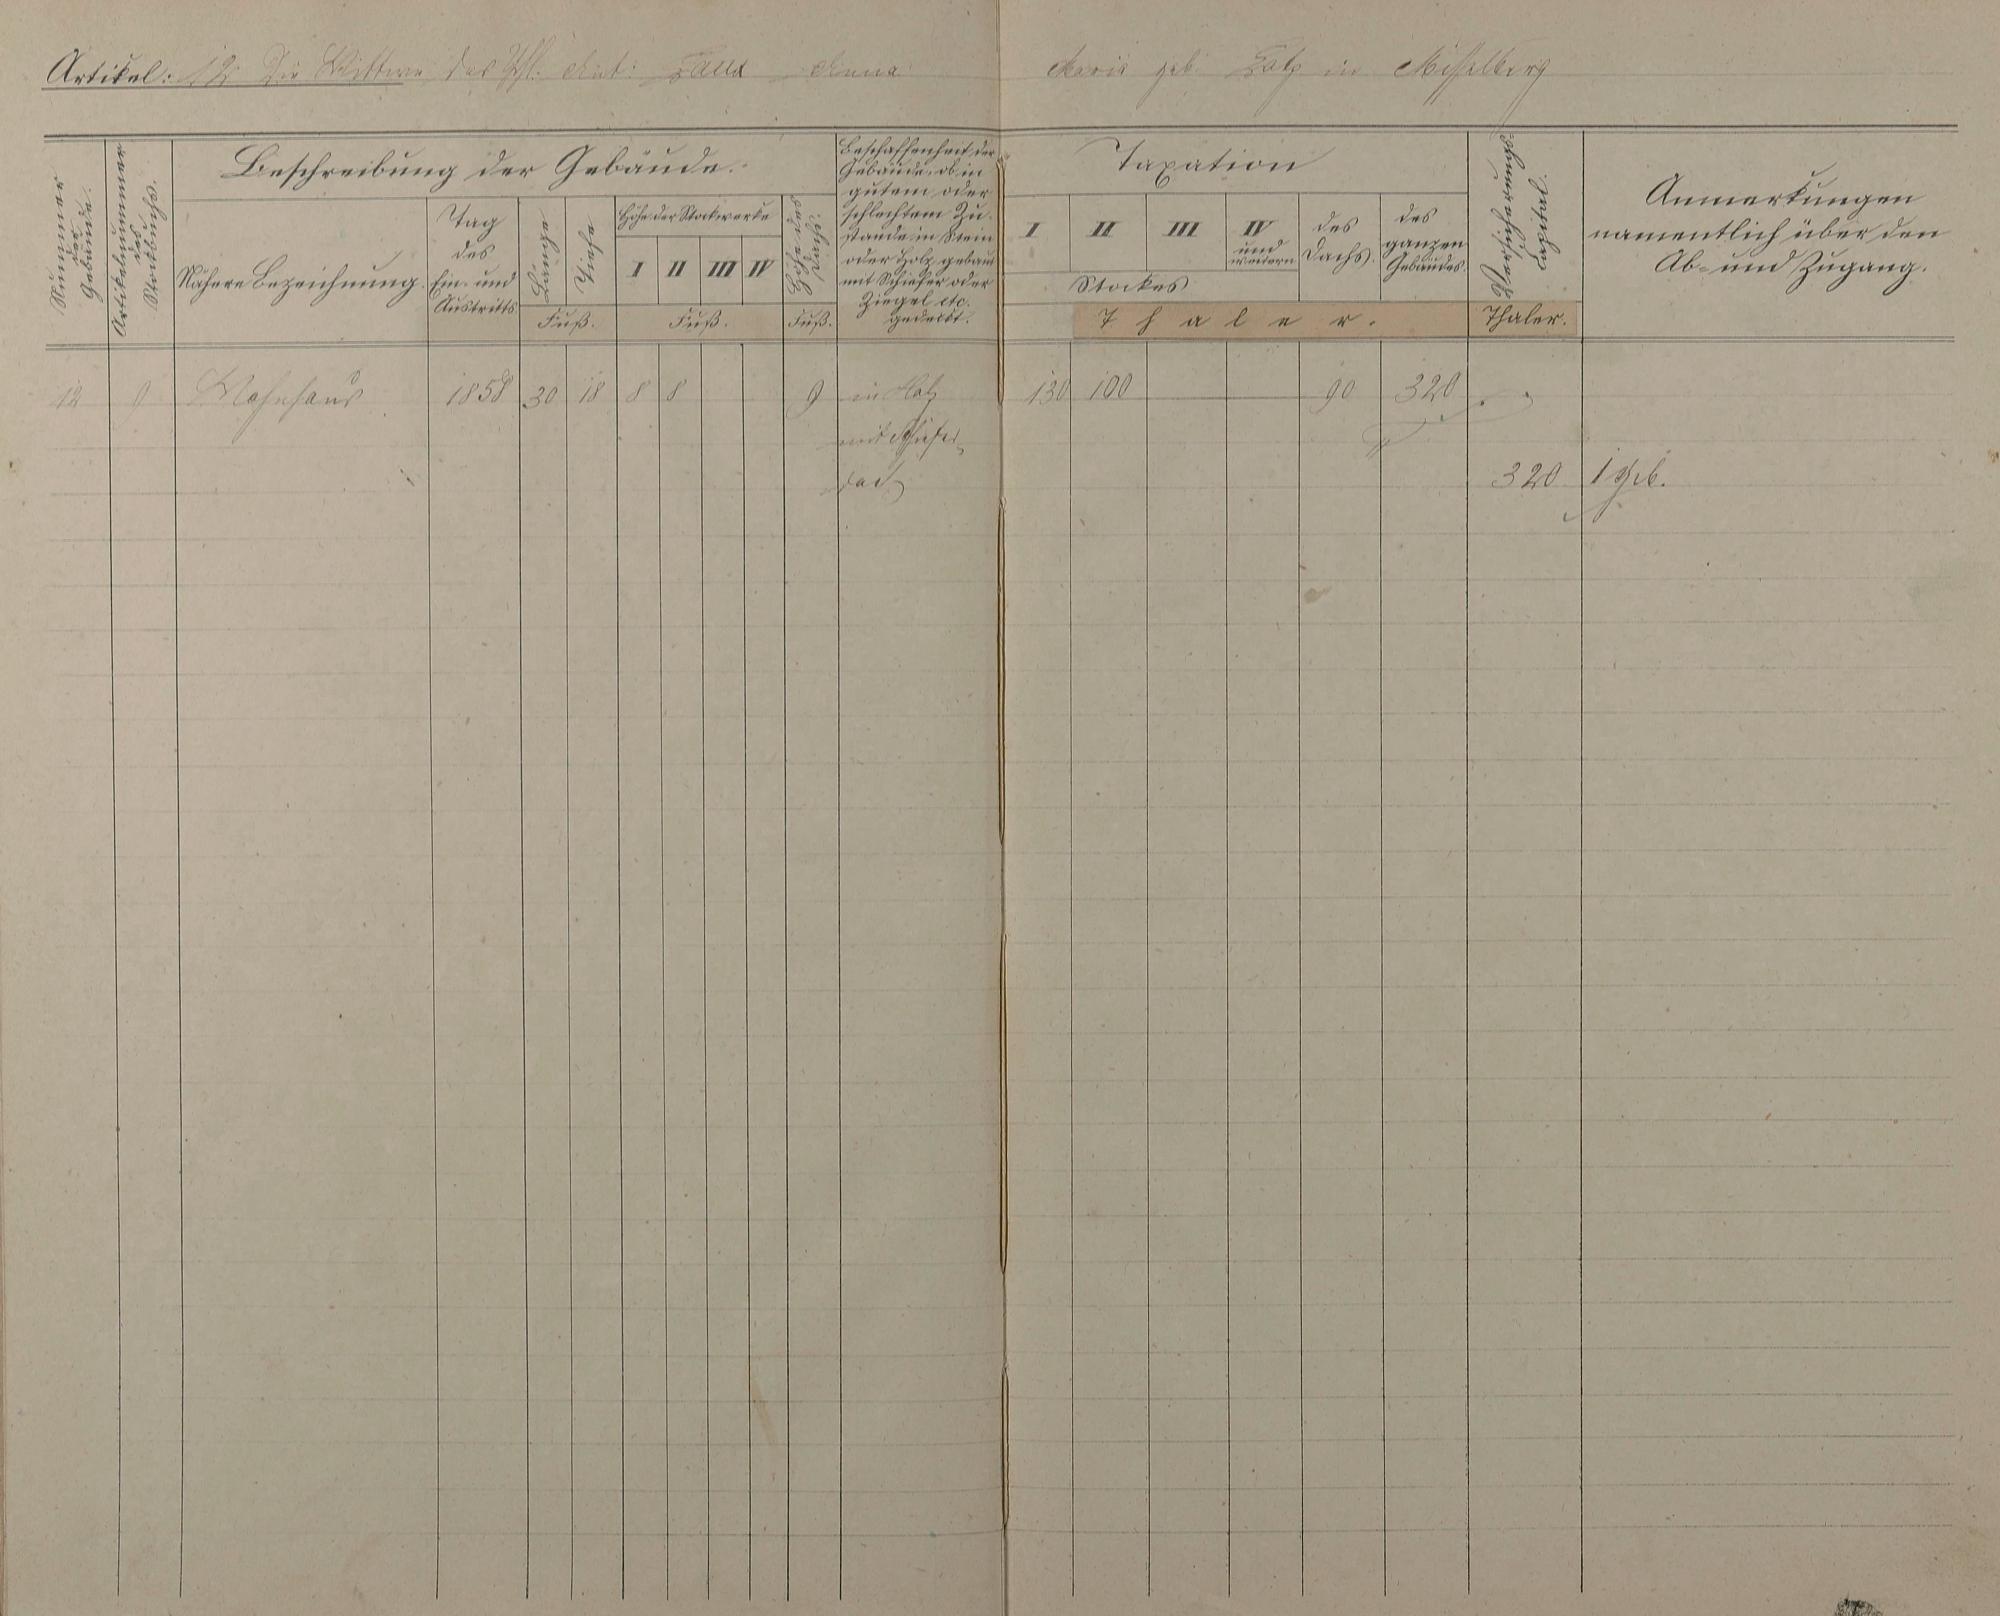 Artikel: 12. Die Wittwe des Phl. Ant: Faux Anna Maria geb. in Misselberg
Nummer der Gebäude.
Artikelnummer des Stockbuchs.
Beschreibung der Gebäude.
Nähere Bezeichnung.
Tag des Ein- und Austritts
Länge
Tiefe
Fuß.
Höhe der Stockwerke
I II III IV
Fuß.
Höhe des Dachs.
Fuß.
Beschaffenheit der
Gebäude, ob in
gutem oder
schlechtem Zu-
stande in Stein
oder Holz gebaut
mit Schiefer oder
Ziegel etc.
gedeckt.
Taxation
I II III IV und weitern
Stockes
des Dachs.
des ganzen Gebäudes.
Thaler.
Versicherungs Capital.
Thaler.
Anmerkungen
namentlich über den
Ab- und Zugang.
12 9 Wohnhaus 1858 30 18 8 8 9 in Holz 130 100 90 320
mit Schiefer
dach 320 1 Geb.